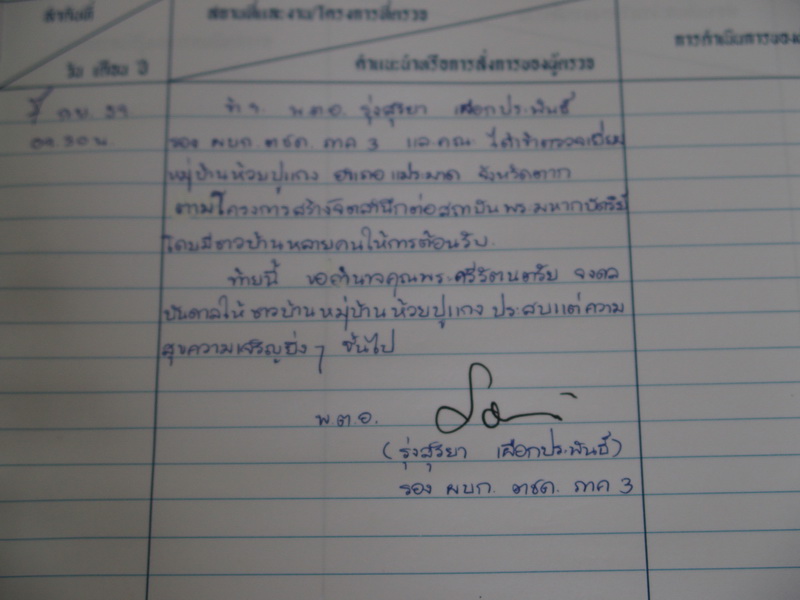 ลำดับที่
สถานที่และงาน/โครงการที่ตรวจ
วัน เดือน ปี
คำแนะนำหรือการสั่งการของผู้ตรวจ
การดำเนินการของ
ก.ย. 39
ข้า ฯ พ.ต.อ. รุ่งสุริยา เผือกประพันธ์
09.30 น.
รอง ผบก. ตชด. ภาค 3 และคณะ ได้เข้าตรวจเยี่ยม
หมู่บ้านห้วยปูแกง อำเภอแม่ระมาด จังหวัดตาก
ตามโครงการสร้างจิตสำนึกต่อสถาบันพระมหากษัตริย์
โดยมีชาวบ้านหลายคนให้การต้อนรับ.
ท้ายนี้ ขออำนาจคุณพระศรีรัตนตรัย จงดล
บันดาลให้ ชาวบ้านหมู่บ้านห้วยปูแกง ประสบแต่ความ
สุขความเจริญยิ่ง ๆ ขึ้นไป
พ.ต.อ.
(รุ่งสุริยา เผือกประพันธ์)
รอง ผบก. ตชด. ภาค 3